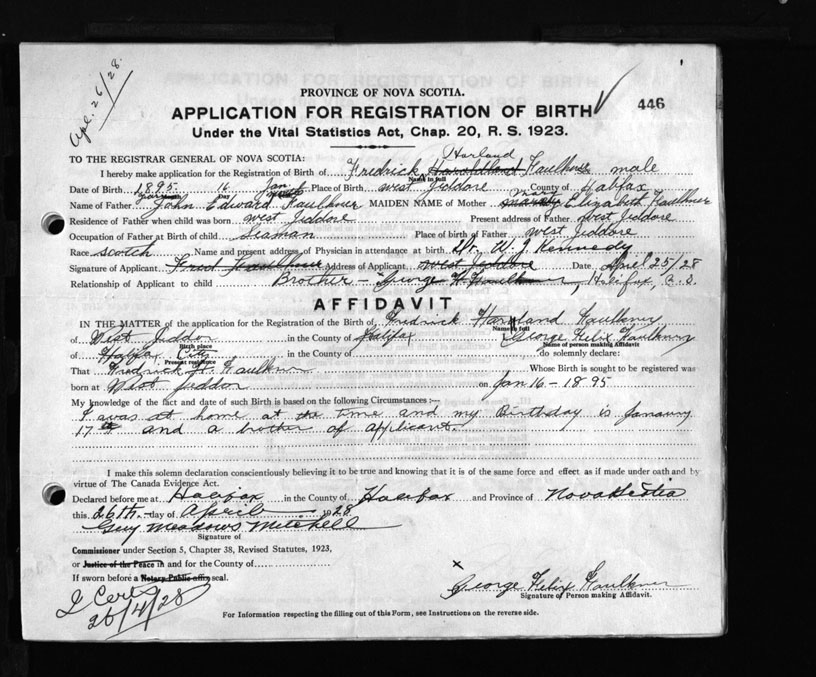 Apl. 26/28.
PROVINCE OF NOVA SCOTIA.
APPLICATION FOR REGISTRATION OF BIRTH
446
Under the Vital Statistics Act, Chap. 20, R. S. 1923.
TO THE REGISTRAR GENERAL OF NOVA SCOTIA:
Harland
I hereby make application for the Registration of Birth of Fredrick Faulkner male
Name in full
Date of Birth 1895 16 Jan Place of Birth West Jeddore County of Halifax
Mary
Name of Father John Edward Faulkner MAIDEN NAME of Mother Elizabeth Faulkner
Residence of Father when child was born West Jeddore Present address of Father West Jeddore
Occupation of Father at Birth of child Seaman Place of Birth of Father West Jeddore
Race Scotch Name and present address of Physician in attendance at birth Dr. W. J. Kennedy
Signature of Applicant Fred Faulkner Address of Applicant West Jeddore Date April 25/28
Relationship of Applicant to child Brother - George F. Faulkner, Halifax, N.S.
AFFIDAVIT
IN THE MATTER of the application for the Registration of the Birth of Fredrick Harland Faulkner
Name in full
of West Jeddor in the County of Halifax George Felix Faulkner
Birth place Name of person making Affidavit
of Halifax City in the County of do solemnly declare:
Present residence
That Fredrick H. Faulkner Whose Birth is sought to be registered was
born at West Jeddor on Jan 16 - 1895
My knowledge of the fact and date of such Birth is based on the following Circumstances :—
I was at home at the time and my Birthday is January
17th and a brother of applicant.
I make this solemn declaration conscientiously believing it to be true and knowing that it is of the same force and effect as if made under oath and by
virtue of The Canada Evidence Act.
Declared before me at Halifax in the County of Halifax and Province of Nova Scotia
this 26th day of April 1928
Guy Meadows Mitchell
Signature of
Commissioner under Section 5, Chapter 38, Revised Statutes, 1923,
or Justice of the Peace in and for the County of
If sworn before a Notary Public affix seal.
x
George Felix Faulkner
Signature of Person making Affidavit.
I Cert
26/4/28
For Information respecting the filling out of this Form, see Instructions on the reverse side.